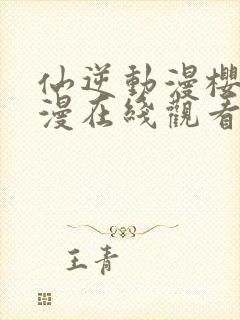 仙逆動漫櫻
漫在綫觀看
王青